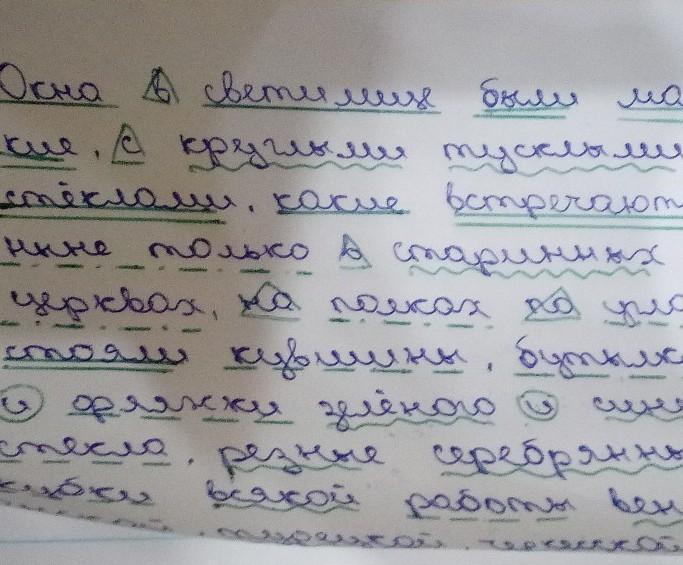 Окна в светлице были ма
кие, с круглыми тусклыми
стёклами, какие встречают
ныне только в старинных
церквах, на полках по угла
стояли кувшины, бутылк
и фляжки зелёного и сине
стекла, резные серебрянны
кубки всякой работы вен
турецкой, черкесской